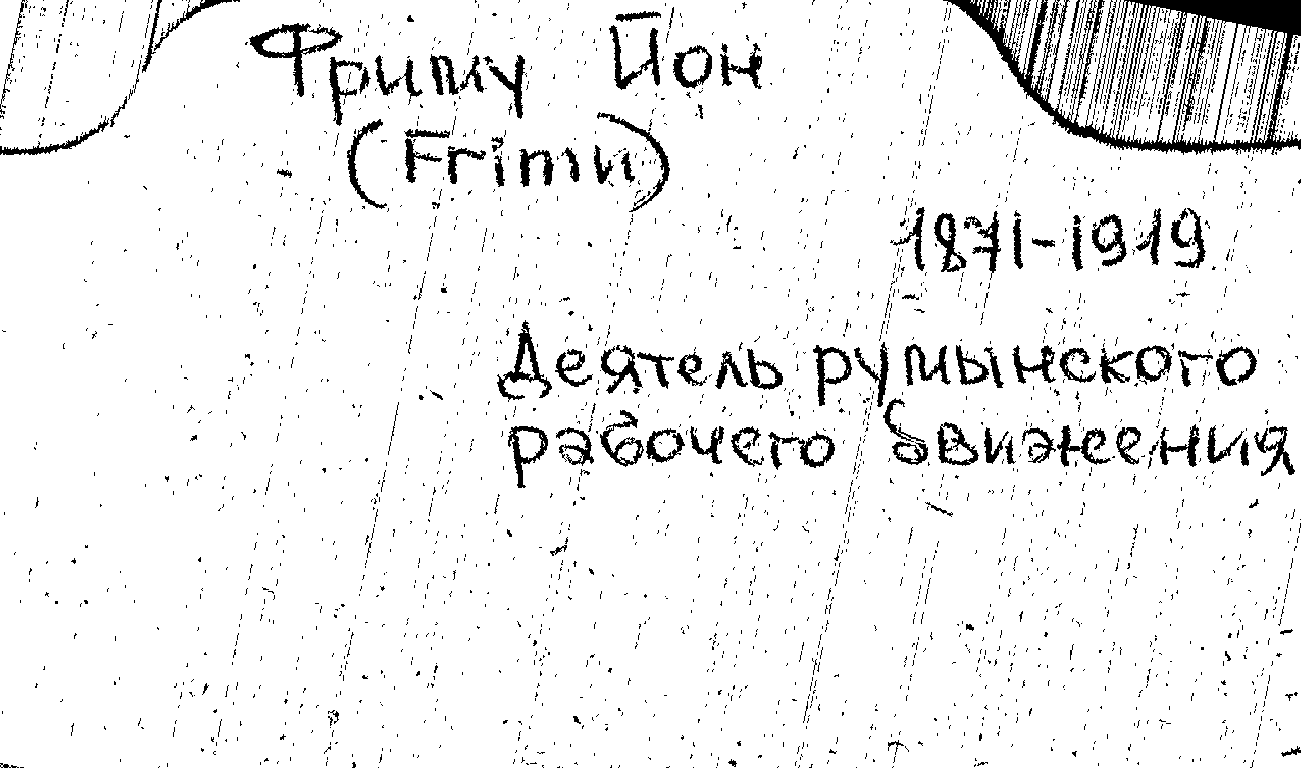 Фриму Йон
(Frimu)
1871-1919
Деятель румынского
рабочего движения